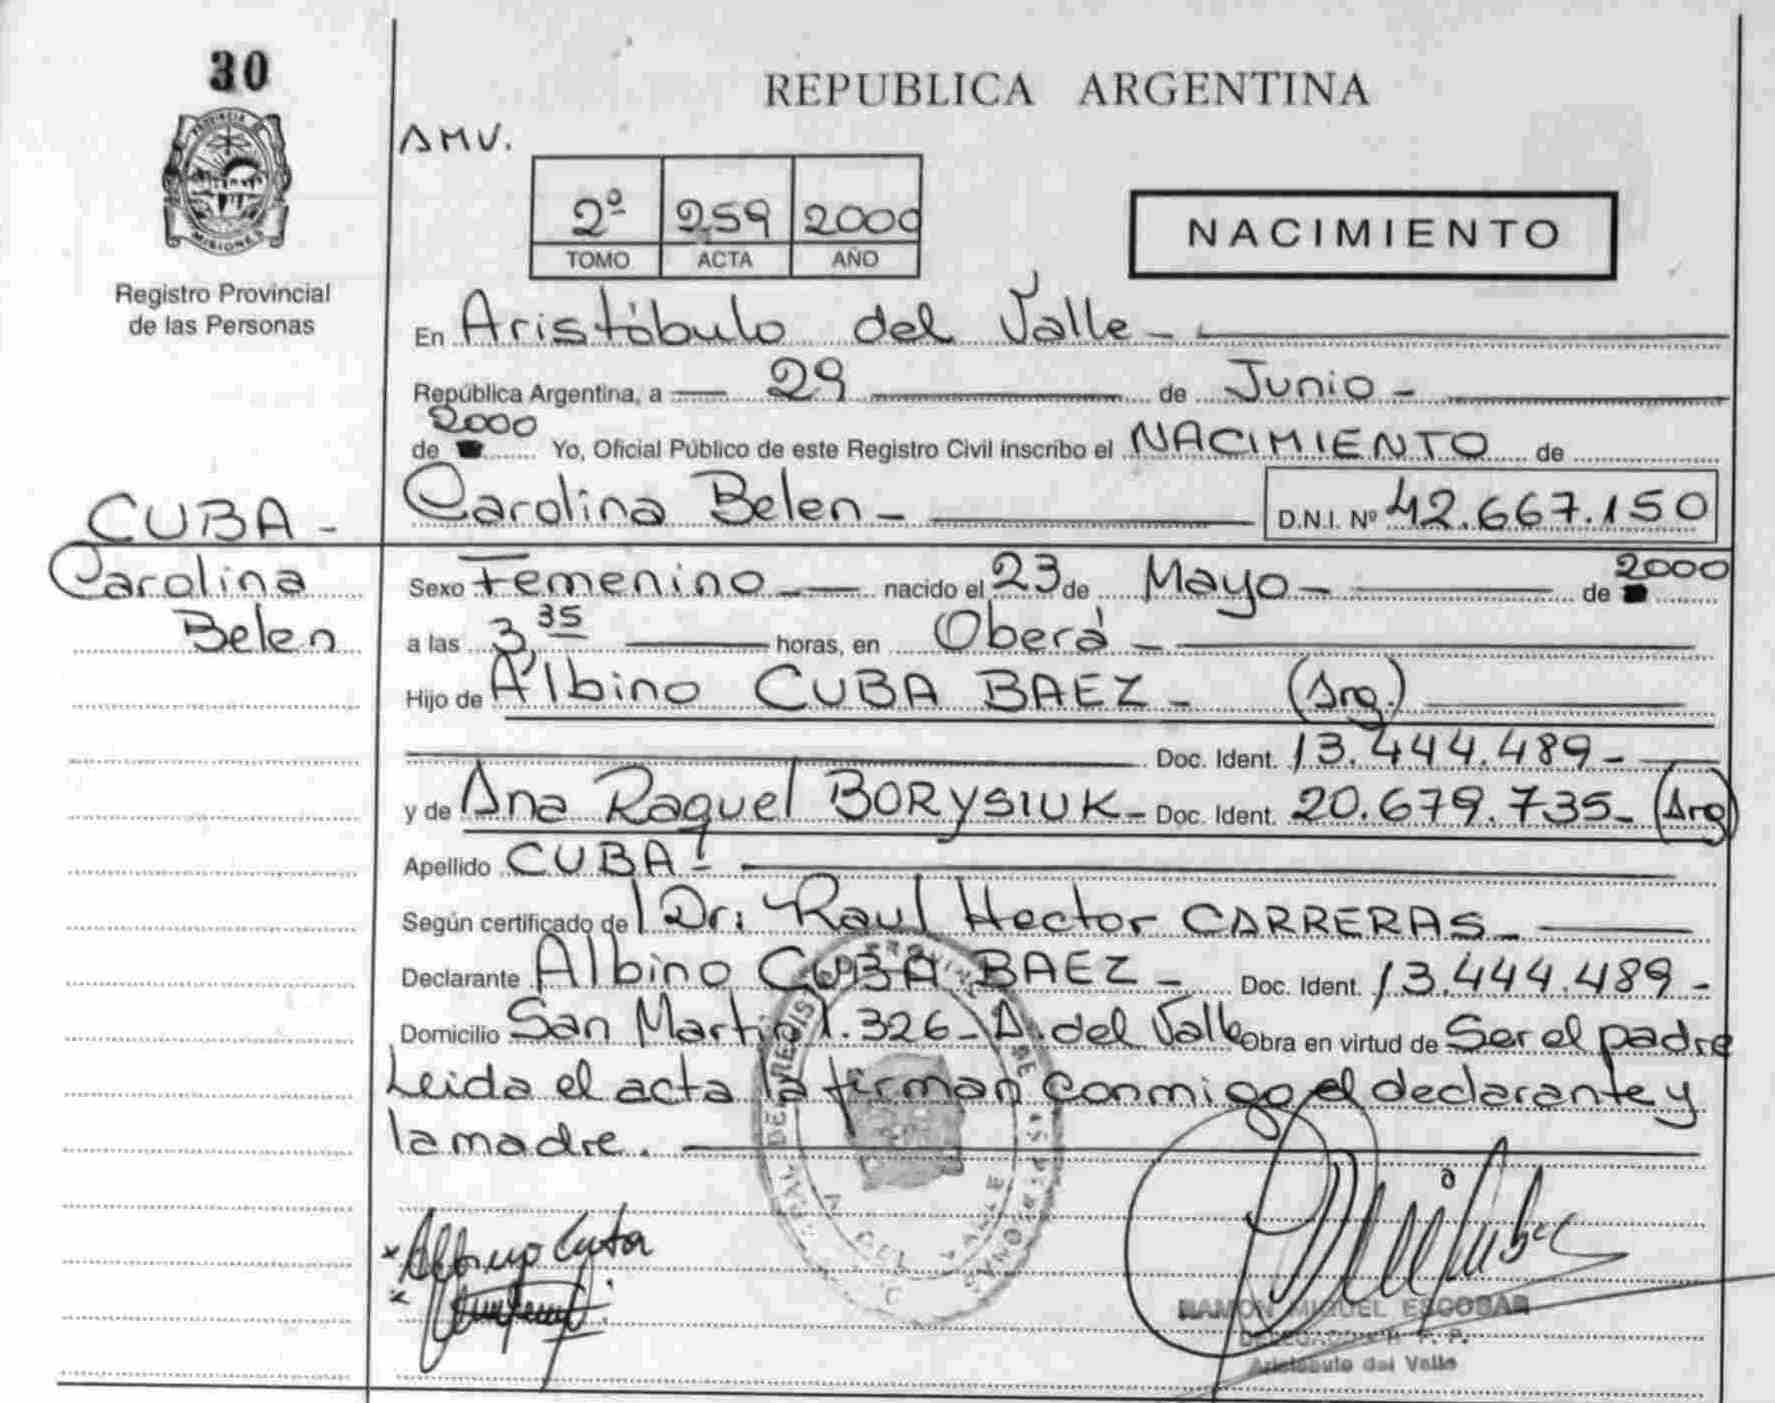 30
PROVINCIA DE
MISIONES
Registro Provincial
de las Personas
REPUBLICA ARGENTINA
AMV.
2º 259 2000
TOMO ACTA AÑO
NACIMIENTO
En Aristóbulo del Valle -
República Argentina, a 29 de Junio -
2000
de Yo, Oficial Público de este Registro Civil inscribo el NACIMIENTO de
Carolina Belen - D.N.I. Nº 42.667.150
CUBA -
Carolina
Belen
Sexo Femenino - nacido el 23 de Mayo - de 2000
a las 3,35 horas, en Oberá -
Hijo de Albino CUBA BAEZ - (Arg.)
Doc. Ident. 13.444.489 -
y de Ana Raquel BORYSIUK - Doc. Ident. 20.679.735 - (Arg)
Apellido CUBA -
Según certificado del Dr: Raul Hector CARRERAS -
Declarante Albino CUBA BAEZ - Doc. Ident. 13.444.489 -
Domicilio San Martin 326 - A. del Valle Obra en virtud de Ser el padre
Leida el acta la firman conmigo el declarante y
la madre.
RAMON MIGUEL ESCOBAR
Aristobulo del Valle